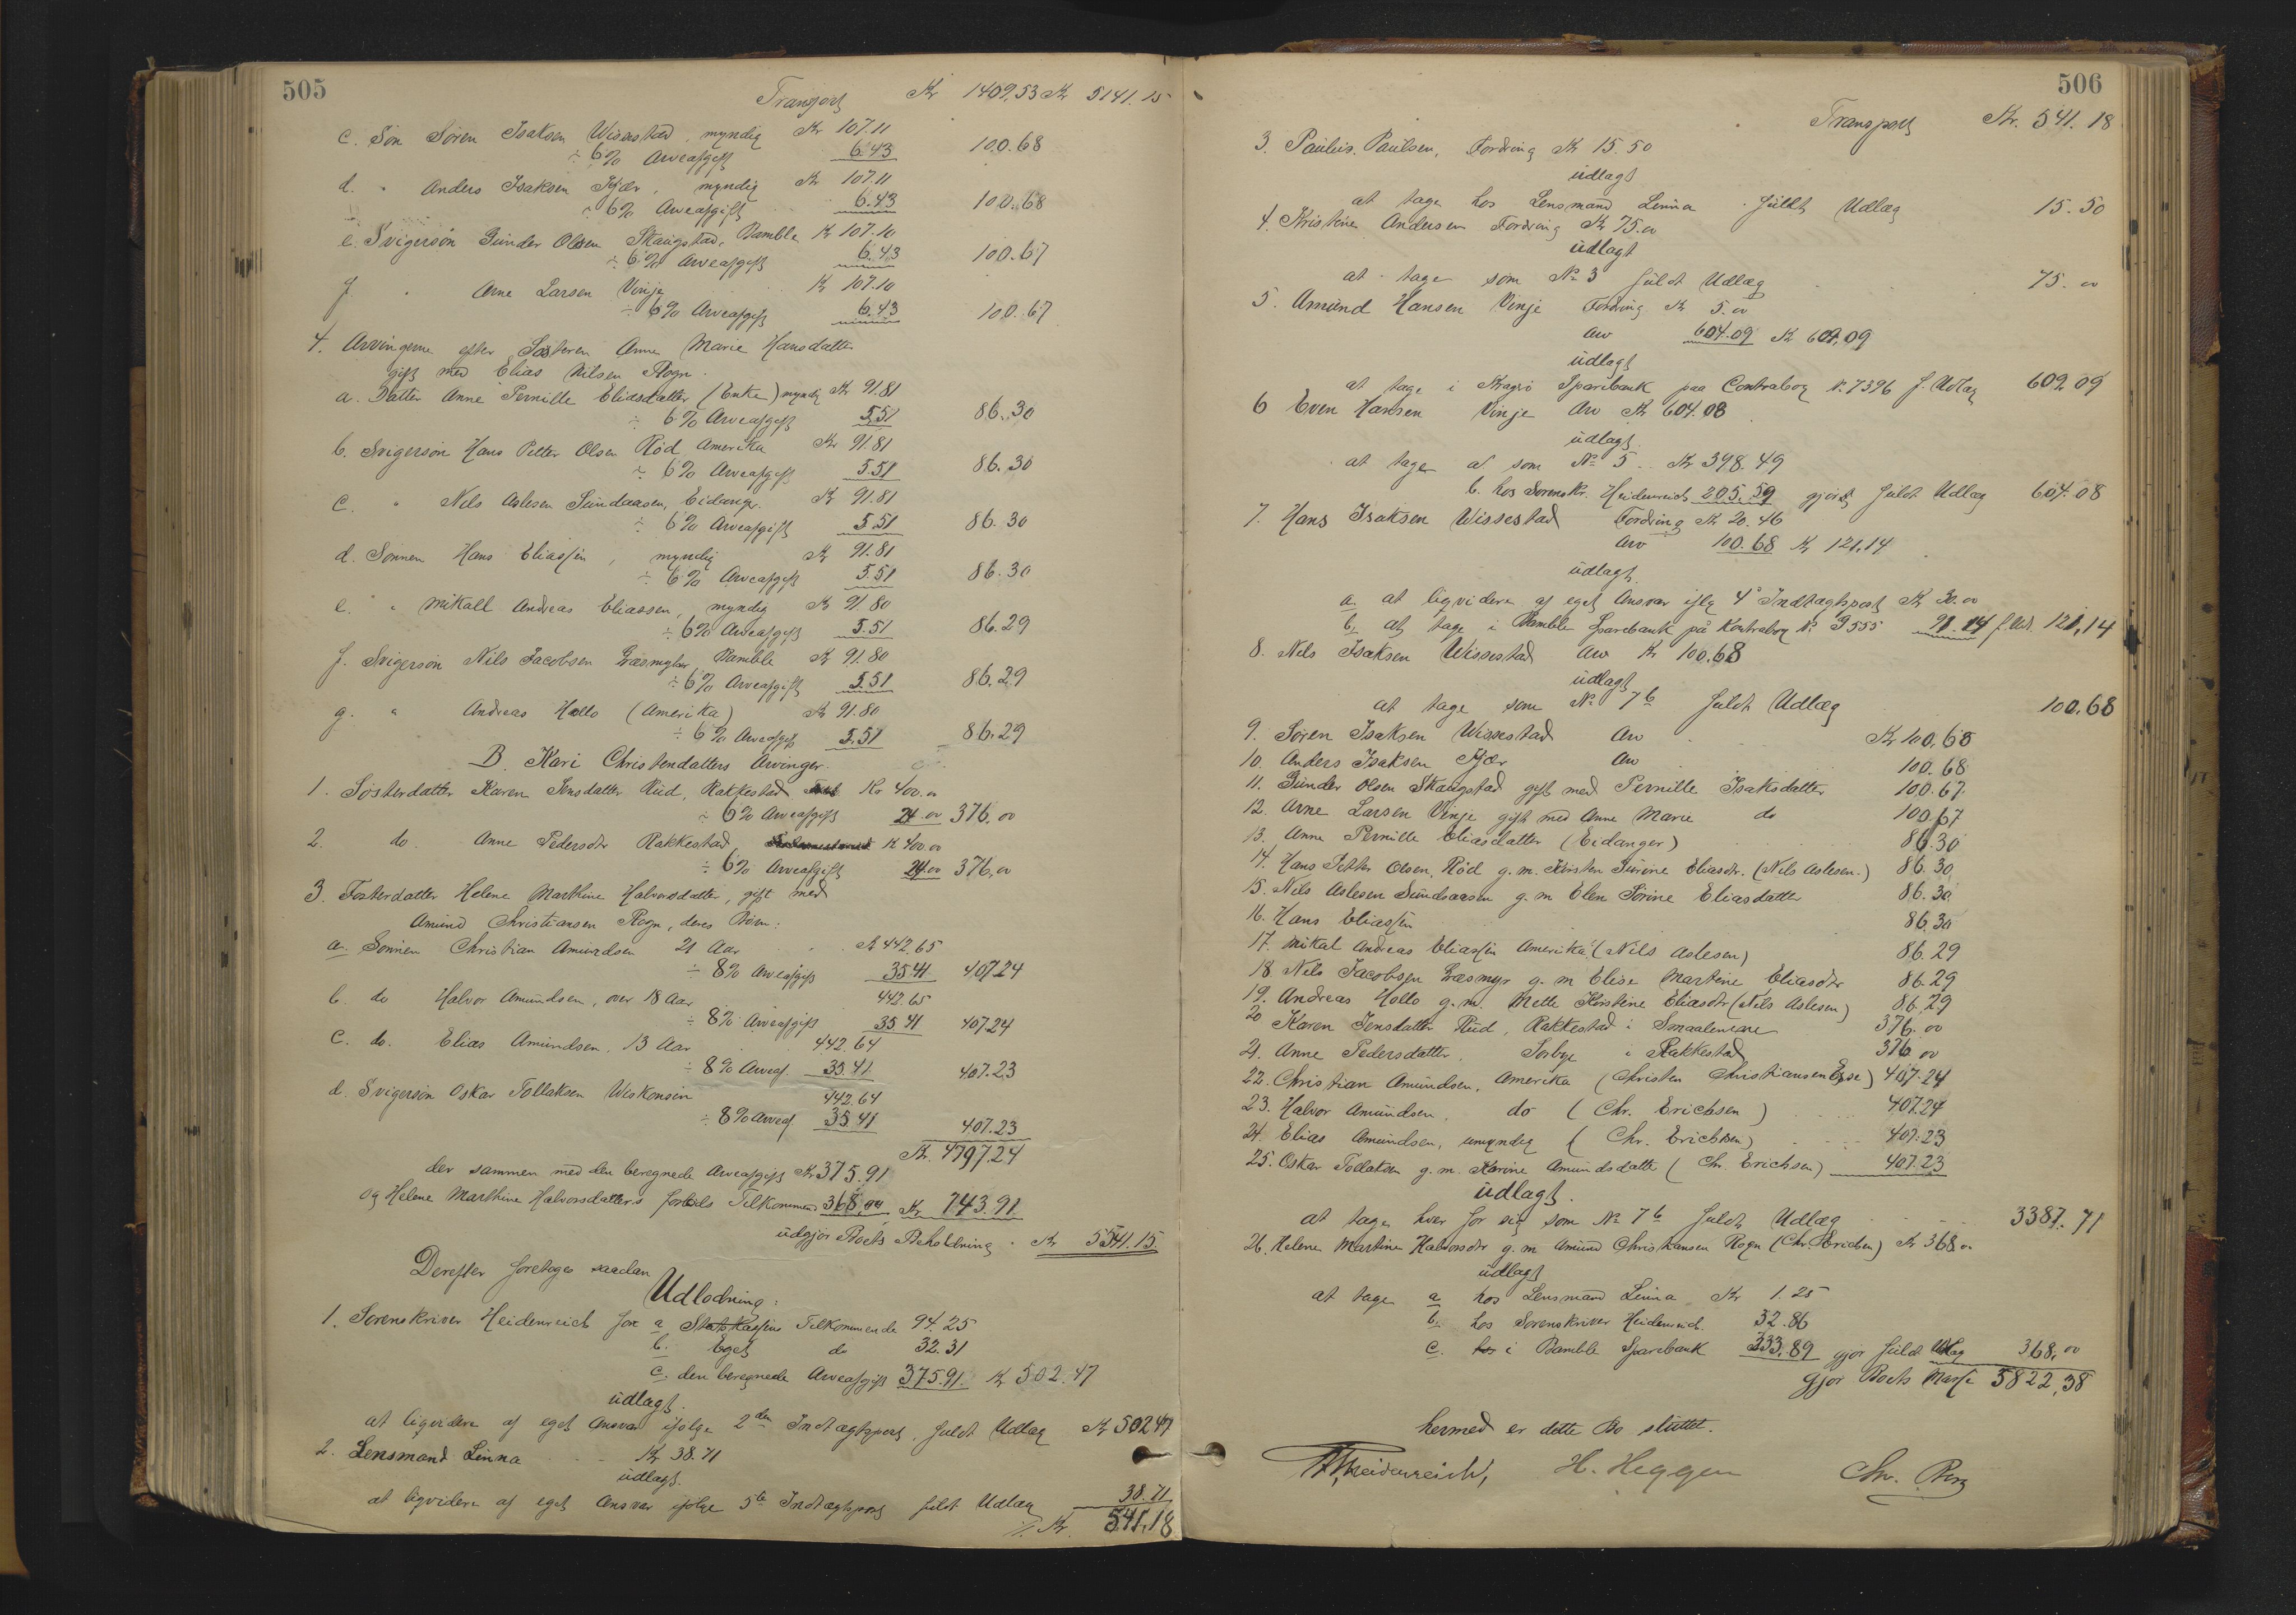 505
Transport Kr 1409,53 Kr 5141.15
c. Søn Søren Isaksen Wissestad myndig Kr 107.11
÷ 6% Arveafgift 6.43 100.68
d. " Anders Isaksen Kjær, myndig Kr 107.11
÷ 6% Arveafgift 6.43 100.68
e. Svigersøn Gunder Olsen Skaugstad, Bamble Kr 107.10
÷ 6% Arveafgift 6.43 100.67
f. " Arne Larsen Vinje Kr 107.10
÷ 6% Arveafgift 6.43 100.67
4. Arvingerne efter Søsteren Anne Marie Hansdatter
gift med Elias Nilsen Rogn.
a. Datter Anne Pernille Eliasdatter (Enke) myndig Kr 91.81
÷ 6% Arveafgift 5.51 86.30
b. Svigersøn Hans Petter Olsen Rød Amerika Kr 91.81
÷ 6% Arveafgift 5.51 86.30
c. " Nils Aslesen Sundaasen, Eidanger Kr 91.81
÷ 6% Arveafgift 5.51 86.30
d. Sønnen Hans Eliassen, myndig Kr 91.81
÷ 6% Arveafgift 5.51 86.30
e. " Mikall Andreas Eliassen, myndig Kr 91.80
÷ 6% Arveafgift 5.51 86.29
f. Svigersøn Nils Jacobsen Læsmyhr Bamble Kr 91.80
÷ 6% Arveafgift 5.51 86.29
g. " Andreas Holto (Amerika) Kr 91.80
÷ 6% Arveafgift 5.51 86.29
B. Kari Christendatters Arvinger.
1. Søsterdatter Karen Jensdatter Rud, Rakkestad Kr 400.00
÷ 6% Arveafgift 24.00 376.00
2. do. Anne Pedersdtr Rakkestad, Kr 400.00
÷ 6% Arveafgift 24.00 376,00
3. Fosterdatter Helene Marthine Halvorsdatter, gift med
Amund Christiansen Rogn, deres Børn:
a. Sønnen Christian Amundsen 21 Aar Kr 442.65
÷ 8% Arveafgift 35.41 407.24
b. do Halvor Amundsen, over 18 Aar 442.65
÷ 8% Arveafgift 35 41 407.24
c. do. Elias Amundsen, 13 Aar 442.64
÷ 8% Arveaf. 35.41 407.23
d. Svigersøn Oskar Tollaksen Wiskonsin 442.64
÷ 8% Arveaf. 35.41 407.23
Kr. 4797.24
der sammen med den beregnede Arveafgift Kr 375.91
og Helene Marthine Halvorsdatter's forlods Tilkommende 368.00 Kr 743.91
udgjør Boets Beholdning Kr 5541.15
Derefter foretoges saadan
Udlodning:
1. Sorenskriver Heidenreich for a Statskassens Tilkommende 94.25
b. Eget do 32.31
c. den beregnede Arveafgift 375.91. Kr 502.47
udlagt.
at liqvidere af eget Ansvar ifølge 2den Indtægtspost, fuldt Udlæg Kr 502 47
2. Lensmand Linna Kr 38.71
udlagt.
at liqvidere af eget Ansvar ifølge 5te Indtægtspost fuldt Udlæg 38.71
% Kr. 541,18
506
Transport Kr. 541.18
3. Paulus Paulsen, Fordring Kr 15.50
udlagt
at tage hos Lensmand Linna fuldt Udlæg 15.50
4. Kristine Andersen Fordring Kr 75.00
udlagt
at tage som No 3 fuldt Udlæg 75.00
5. Amund Hansen Vinje Fordring Kr 5.00
Arv 604.09 Kr 609,09
udlagt
at tage i Kragerø Sparebank paa Contrabog No 7396 f. Udlæg 609 09
6 Even Hansen Vinje Arv Kr 604.08
udlagt.
at tage a som No 5 Kr 398.49
b. hos Sorenskr. Heidenreich 205.59 gjør fuldt Udlæg 604.08
7. Hans Isaksen Wissestad Fordring Kr 20.46
Arv 100.68 Kr 121,14
udlagt.
a. at liqvidere af eget Ansvar iflg 4de Indtægtspost Kr 30.00
b. at tage i Bamble Sparebank på Kontrabog No 3555 91.14 f. Udl. 121,14
8. Nels Isaksen Wissestad Arv Kr 100.68
udlagt
at tage som No 7 b fuldt Udlæg 100.68
9. Søren Isaksen Wissestad Arv Kr 100,68
10. Anders Isaksen Kjær Arv 100.68
11. Gunder Olsen Skaugstad gift med Pernille Isaksdatter 100.67
12. Arne Larsen Vinje gift med Anne Marie do 100.67
13. Anne Pernille Eliasdatter (Eidanger) 86.30
14. Hans Petter Olsen Rød g. m. Kirsten Sørine Eliasdtr. (Nils Aslesen.) 86.30
15. Nils Aslesen Sundsaasen g. m Elen Sørine Eliasdatter 86.30
16. Hans Eliassen 86.30
17. Mikal Andreas Eliassen Amerika (Nils Aslesen) 86.29
18. Nils Jacobsen Læsmyr g. m Elise Martine Eliasdtr 86.29
19. Andreas Holto g. m. Mette Kirstine Eliasdtr (Nils Aslesen) 86,29
20 Karen Jensdatter Rud, Rakkestad i Smaalenene 376.00
21. Anne Pedersdatter, Sorbye i Rakkestad 376 00
22. Christian Amundsen, Amerika (Christen Christiansen) 407.24
23. Halvor Amundsen, do (Chr. Erichsen) 407.24
24. Elias Amundsen, umyndig (Chr. Erichsen) 407.23
25. Oskar Tollaksen g. m. Karine Amundsdatter (Chr. Erichsen) 407.23
udlagt.
at tage hver for sig som No 7 b fuldt Udlæg 3387.71
26. Helene Martine Halvorsdtr g. m Amund Christiansen Rogn (Chr. Erichsen) Kr 368.00
udlagt
at tage a hos Lensmand Linna Kr 1.25
b. hos Sorenskriver Heidenreich 32.86
c. hos i Bamble Sparebank 333,89 gjør fuldt Udlæg 368,00
Gjør Boets Masse 5822,38
hermed er dette Bo sluttet.
Heidenreich, H. Heggen Chr. Berg